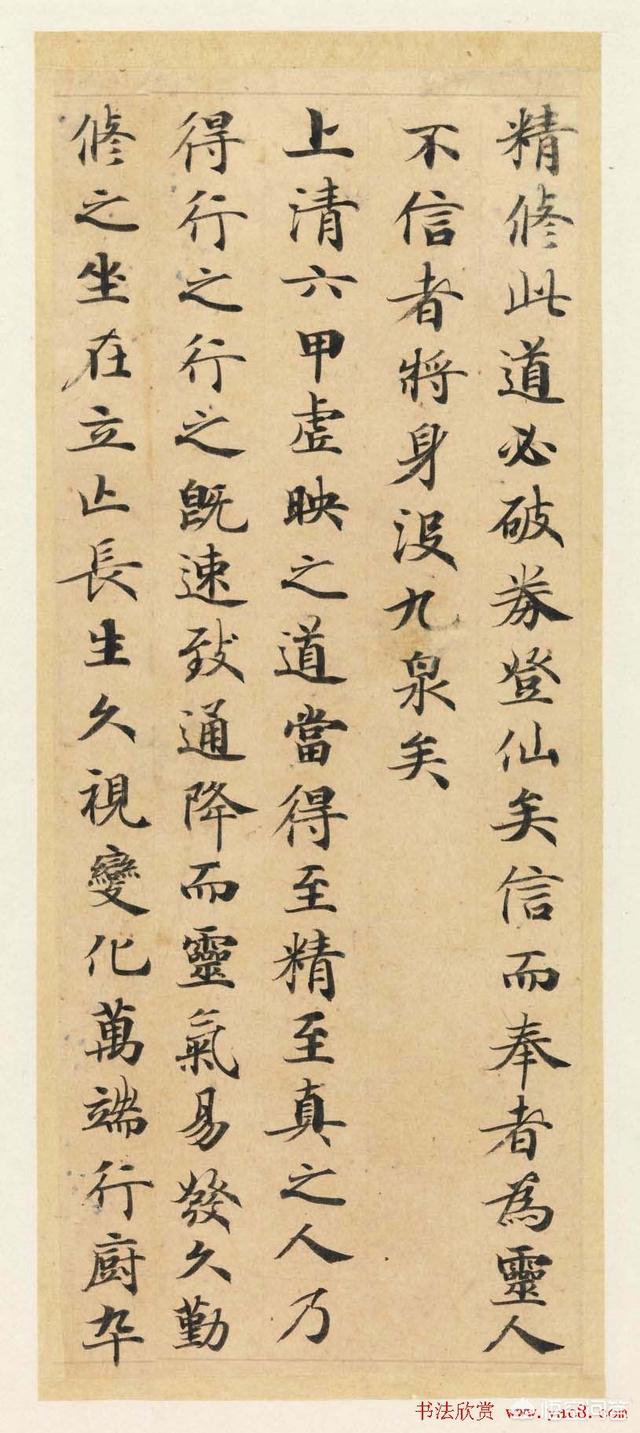 精修此道必破券登仙矣信而奉者為靈人
不信者將身没九泉矣
上清六甲虚映之道當得至精至真之人乃
得行之行之既速致通降而靈氣易發久勤
修之坐在立亡長生久視變化萬端行厨卒
书法欣赏 www.yac8.com